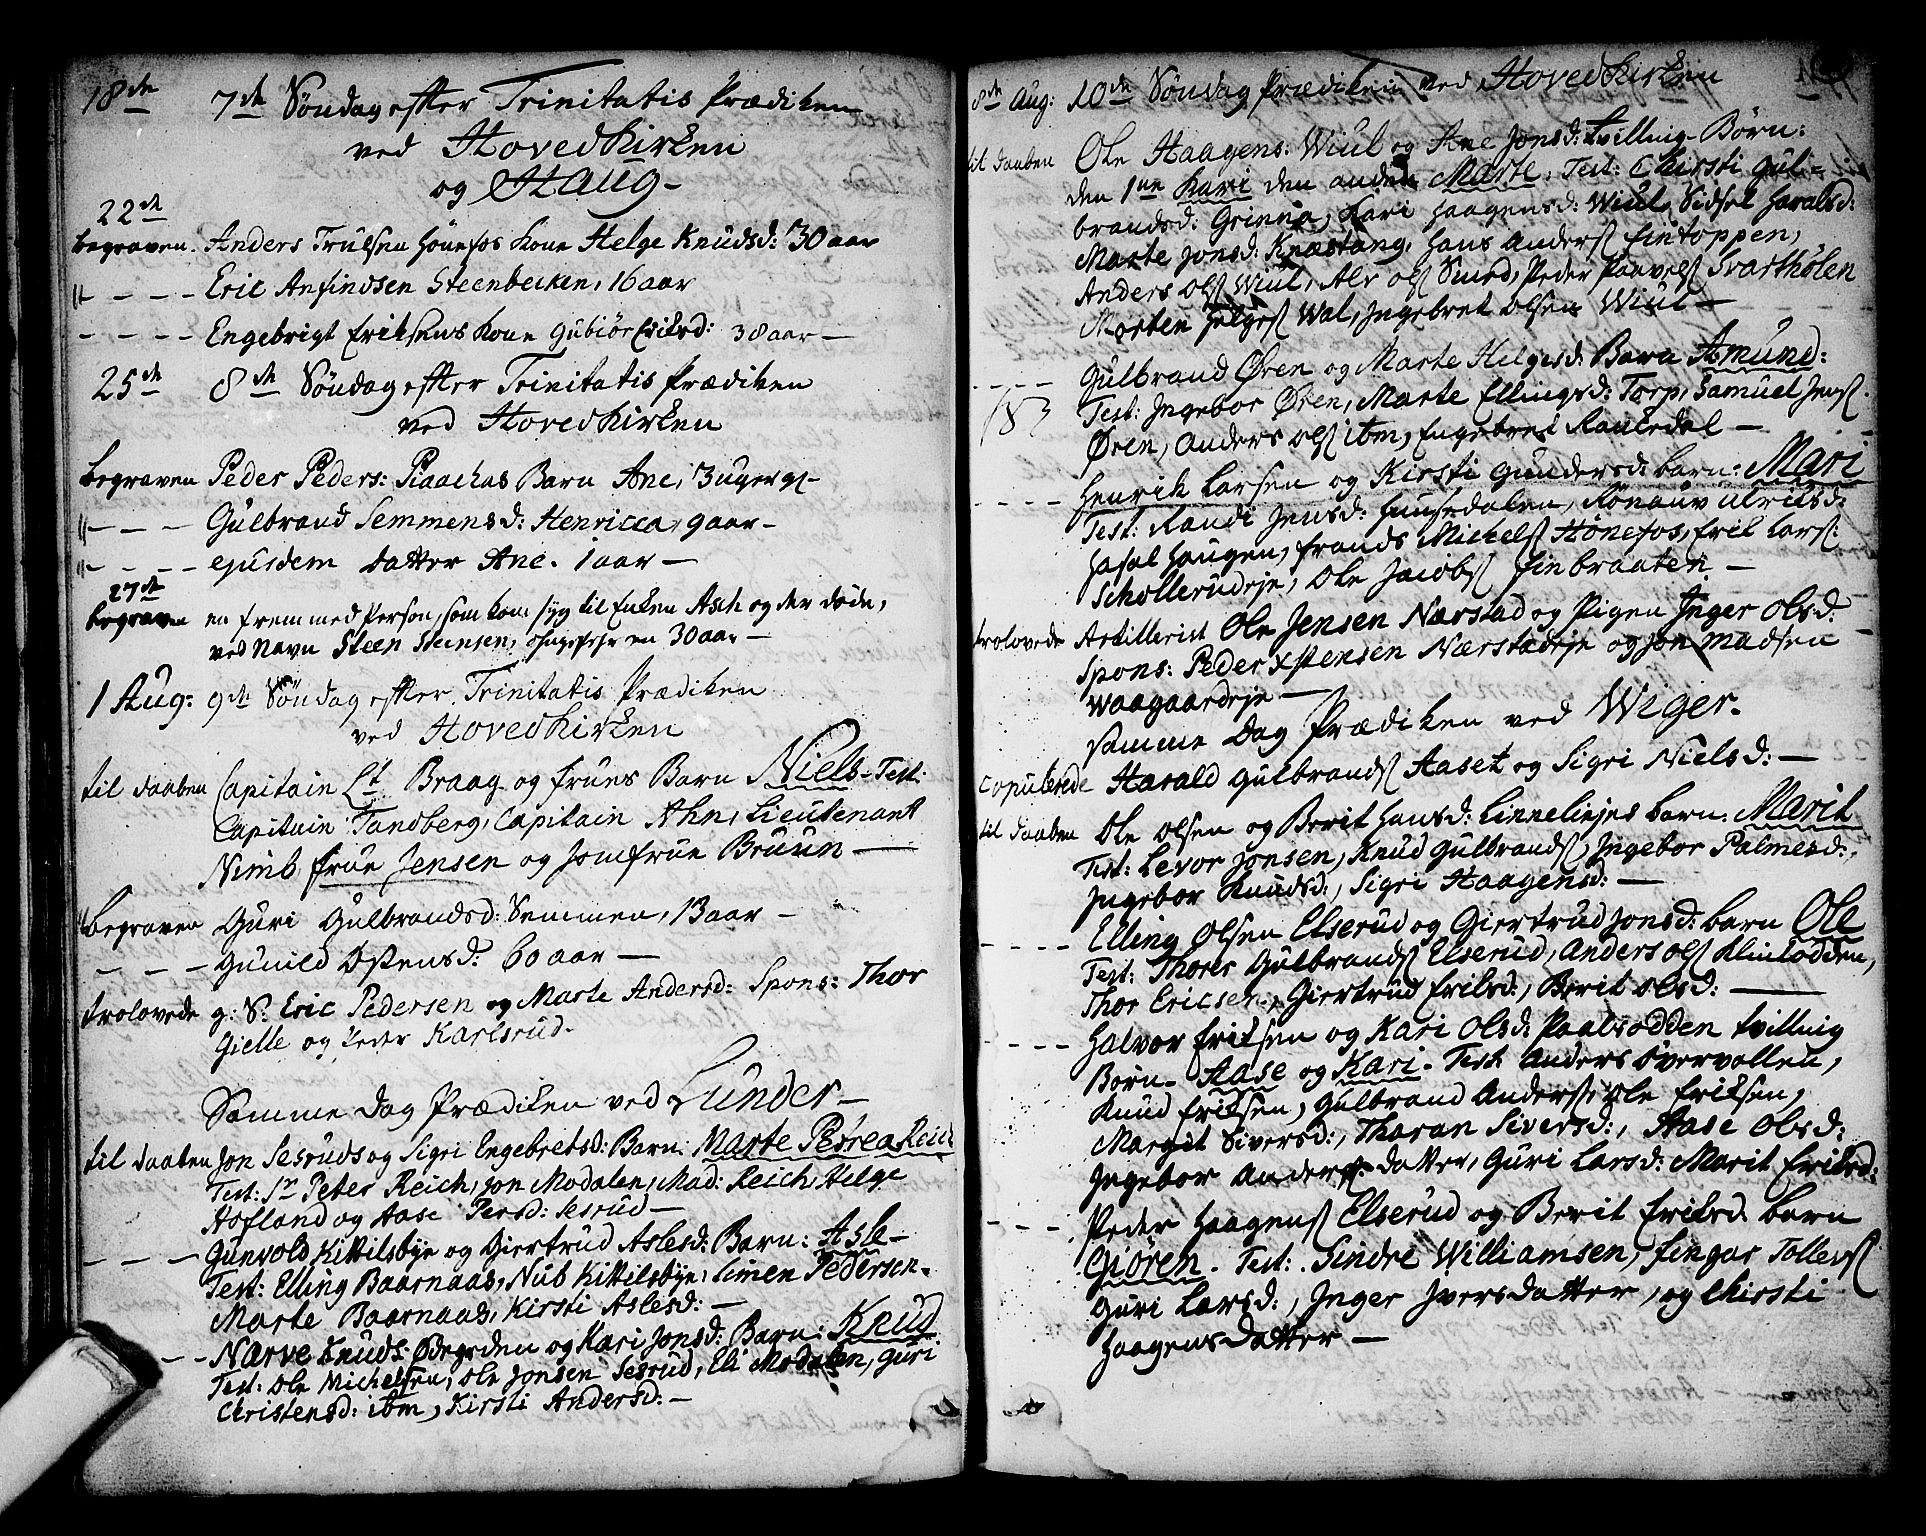 18de 7de Søndag efter Trinitatis Prædiken
ved Hovedkirken
og Haug-
22de
begraven. Anders Trulsen Hønefos Kone Helge Knudsd: 30 aar
- - - - Eric Anfindsen Steenbecken, 16 aar
- - - - Engebrigt Eriksens Kone Gubiør Eriksd: 38 aar -
25de 8de Søndag efter Trinitatis Prædiken
ved Hovedkirken
begraven Peder Peders: Barn Ane, 3 uger
- - - Gulbrand Semmens d: Henricca, 9 aar -
- - - - ejusdem Datter Ane. 1 aar -
27de
begraven en fremmed Person, som kom syg til Enken Asch og der døde,
ved Navn Steen Steinsen, en 30 aar -
1 Aug: 9de Søndag efter Trinitatis Prædiken
ved Hovedkirken
til daaben Capitain Lt Braag og Frues Barn Niels - Test:
Capitain Tandberg, Capitain Ahn, Lieutenant
Nimb Frue Jensen og Jomfrue Bruun -
begraven Guri Gulbrandsd: Semmen, 13 aar -
- - - Gunild Østensd: 60 aar -
trolovede g: S: Eric Pedersen og Marte Andersd: Spons: Thor
Gielle og Peder Karlsrud-
Samme Dag Prædiken ved Lunder -
til daaben Jon Sesruds og Sigri Engebretsd: Barn: Marte Petrea Reich
Test: Sr Peter Reich, Jon Modalen, Mad: Reich, Helge
Hofland og Aase Persd: Sesrud -
- - - Gunvold Kittilsbye og Giertrud Aslesd: Barn: Asle -
Test: Elling Baarnaas, Nub Kittilsbye, Simen Pedersen-
Marte Baarnaas, Kirsti Aslesd: -
- - Narve Knuds: Øegrden og Kari Jonsd: Barn: Knud
Test: Ole Michelsen, Ole Jonsen Sesrud, Eli Modalen, Guri
Christensd: ibm, Kirsti Andersd: -
8de Aug: 10de Søndag Prædiken ved Hovedkirken
til daaben Ole Haagens: Wiul og Ane Jonsd: Tvilling Børn:
den 1ne Kari den anden Marte, Test: Chirsti Gul-
brandsd: Grinna, Kari Haagensd: Wiul, Sidsel Haralsd:
Marte Jonsd: Knæstang, Hans Anders Fintoppen,
Anders Ols Wiul, Alv Ols Smed, Peder Paavels Svarthølen
Morten Helges Wal, Ingebret Olsen Wiul -
- - - - Gulbrand Øren og Marte Helgesd: Barn Amund:
Test: Ingebor Øren, Marte Ellingsd: Torp, Samuel Jens
Øren, Anders Ols ibm, Engebret Rauledal -
- - - - Henrik Larsen og Kirsti Gundersd: barn: Mari
Test: Randi Jensd: Hunsedalen, Rønauv Ulriksd:
Hasel Haugen, Frands Michels Hønefos, Erik Lars:
Schollerudeje, Ole Jacobs Finbraaten -
trolovede Artillerist Ole Jensen Nærstad og Pigen Inger Olsd:
Spons: Peder Xstensen Nærstadeje og Jon Madsen
Waagaardeje -
Samme Dag Prædiken ved Wiger-
copulerede Harald Gulbrands Aaset og Sigri Nielsd: -
til daaben Ole Olsen og Berit Hansd: Linneliejes barn: Marit
Test: Levor Jonsen, Knud Gulbrands, Ingebor Palmesd:,
Ingebor Knudsd:, Sigri Haagensd: -
- - - - Elling Olsen Elserud og Giertrud Jonsd: barn Ole
Test: Thores Gulbrands Elserud, Anders Ols Klinlodden,
Thor Ericsen, Giertrud Eriksd:, Berit Olsd: -
- - - - Halvor Eriksen og Kari Olsd: Paalsodden tvilling
Børn - Aase og Kari - Test: Anders Svervollen,
Knud Eriksen, Gulbrand Anders, Ole Eriksen,
Margit Siversd:, Thoran Siversd:, Aase Olsd:
Ingebor Anders datter, Guri Larsd: Marit Eriksd:
- - - - Peder Haagens Elserud og Berit Eriksd: barn
Giøren - Test: Sindre Williamsen, Fingar Tollevs
Guri Larsd:, Inger Iversdatter, og Chirsti
Haagensdatter -